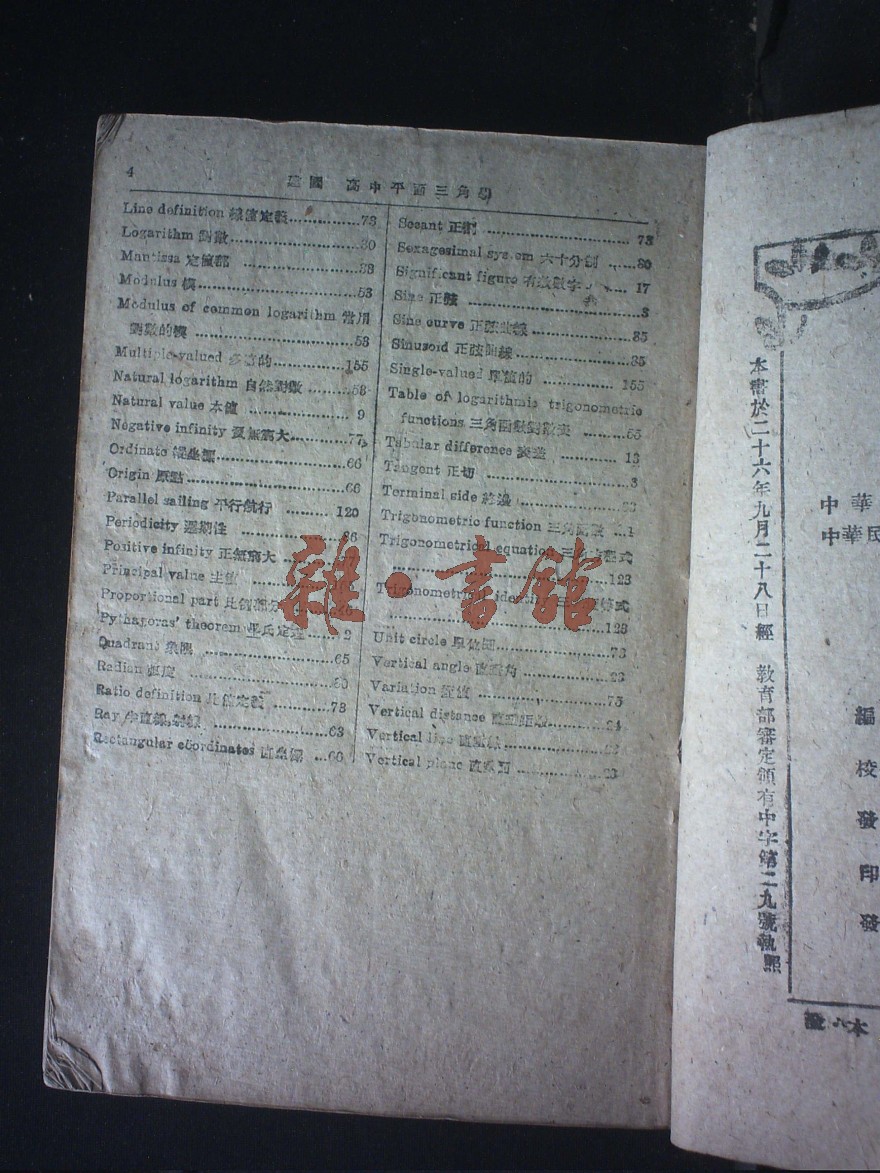 4
建國 高中平面三角學
Line definition 線值定義……………73
Logarithm 對數……………30
Mantissa 定值部 ……………38
Modulus 模……………53
Modulus of common logarithm 常用
對數的模 ……………53
Multiple-valued 多值的……………155
Natural logarithm 自然對數 ………53
Natural value 本值 ……………9
Negative infinity 負無窮大……………77
Ordinate 縱坐標……………66
Origin 原點……………66
Parallel sailing 平行航行 ………120
Periodicity 週期性 ……………86
Positive infinity 正無窮大
Principal value 主值
Proportional part 比例部分
Pythagoras' theorem 畢氏定理 2
Quadrant 象限 ……………65
Radian 弳度 ……………80
Ratio definition 比值定義 ………73
Ray 半直線,射線 ……………63
Rectangular coordinates 直坐標 …66
Secant 正割 ……………73
Sexagesimal system 六十分制 ……80
Significant figure 有效數字 17
Sine 正弦 ……………3
Sine curve 正弦曲線……………85
Sinusoid 正弦曲線……………85
Single-valued 單值的 ……………155
Table of logarithmic trigonometric
functions 三角函數對數表 ………55
Tabular difference 表差 ………13
Tangent 正切 ……………3
Terminal side 終邊……………63
Trigonometric function 三角函數 …1
Trigonometrical equation 三 程式
……………123
Trigonometrical identity 三 等式
……………128
Unit circle 單位圓……………73
Vertical angle 直立角……………23
Variation 變值 ……………75
Vertical distance 直立距離………24
Vertical line 直立線……………23
Vertical plane 直立面……………23
雜·書館
本書於二十六年九月二十八日經 教育部審定領有中字第二九號執照
中華
中華民
編
校
發
印
發
本八